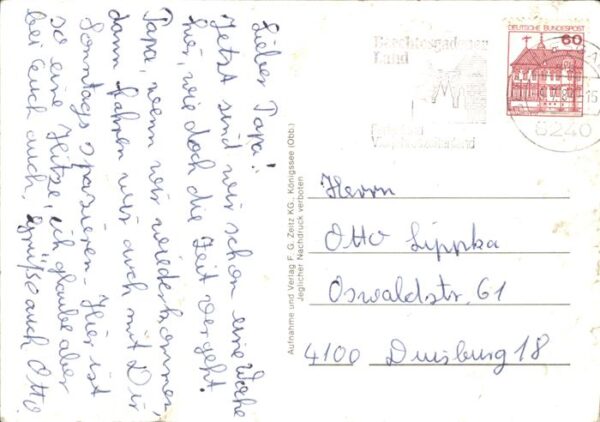 Lieber Papa!
Jetzt sind wir schon eine Woche
hier, wie doch die Zeit vergeht!
Papa, wenn wir wiederkommen,
dann fahren wir auch mit Dir
Sonntags spazieren. – Hier ist
so eine Hitze, ich glaube aber
bei Euch auch, Grüße auch Otto
Aufnahme und Verlag F. G. Zeitz KG., Königssee (Obb.)
Jeglicher Nachdruck verboten
Berchtesgadener
Land
DEUTSCHE BUNDESPOST
60
8240
Herrn
Otto Lippka
Oswaldstr. 61
4100 Duisburg 18